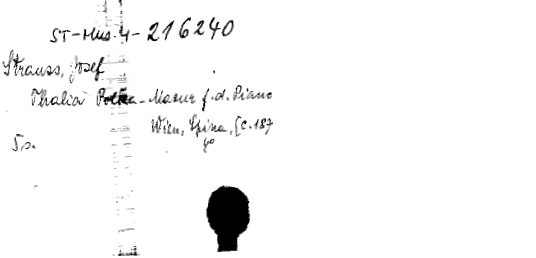 ST-Mus.4-216240
Strauss, Josef
Thalia Polka-Mazur f.d. Piano
Wien, Spina, [c.187
4°
5 s.